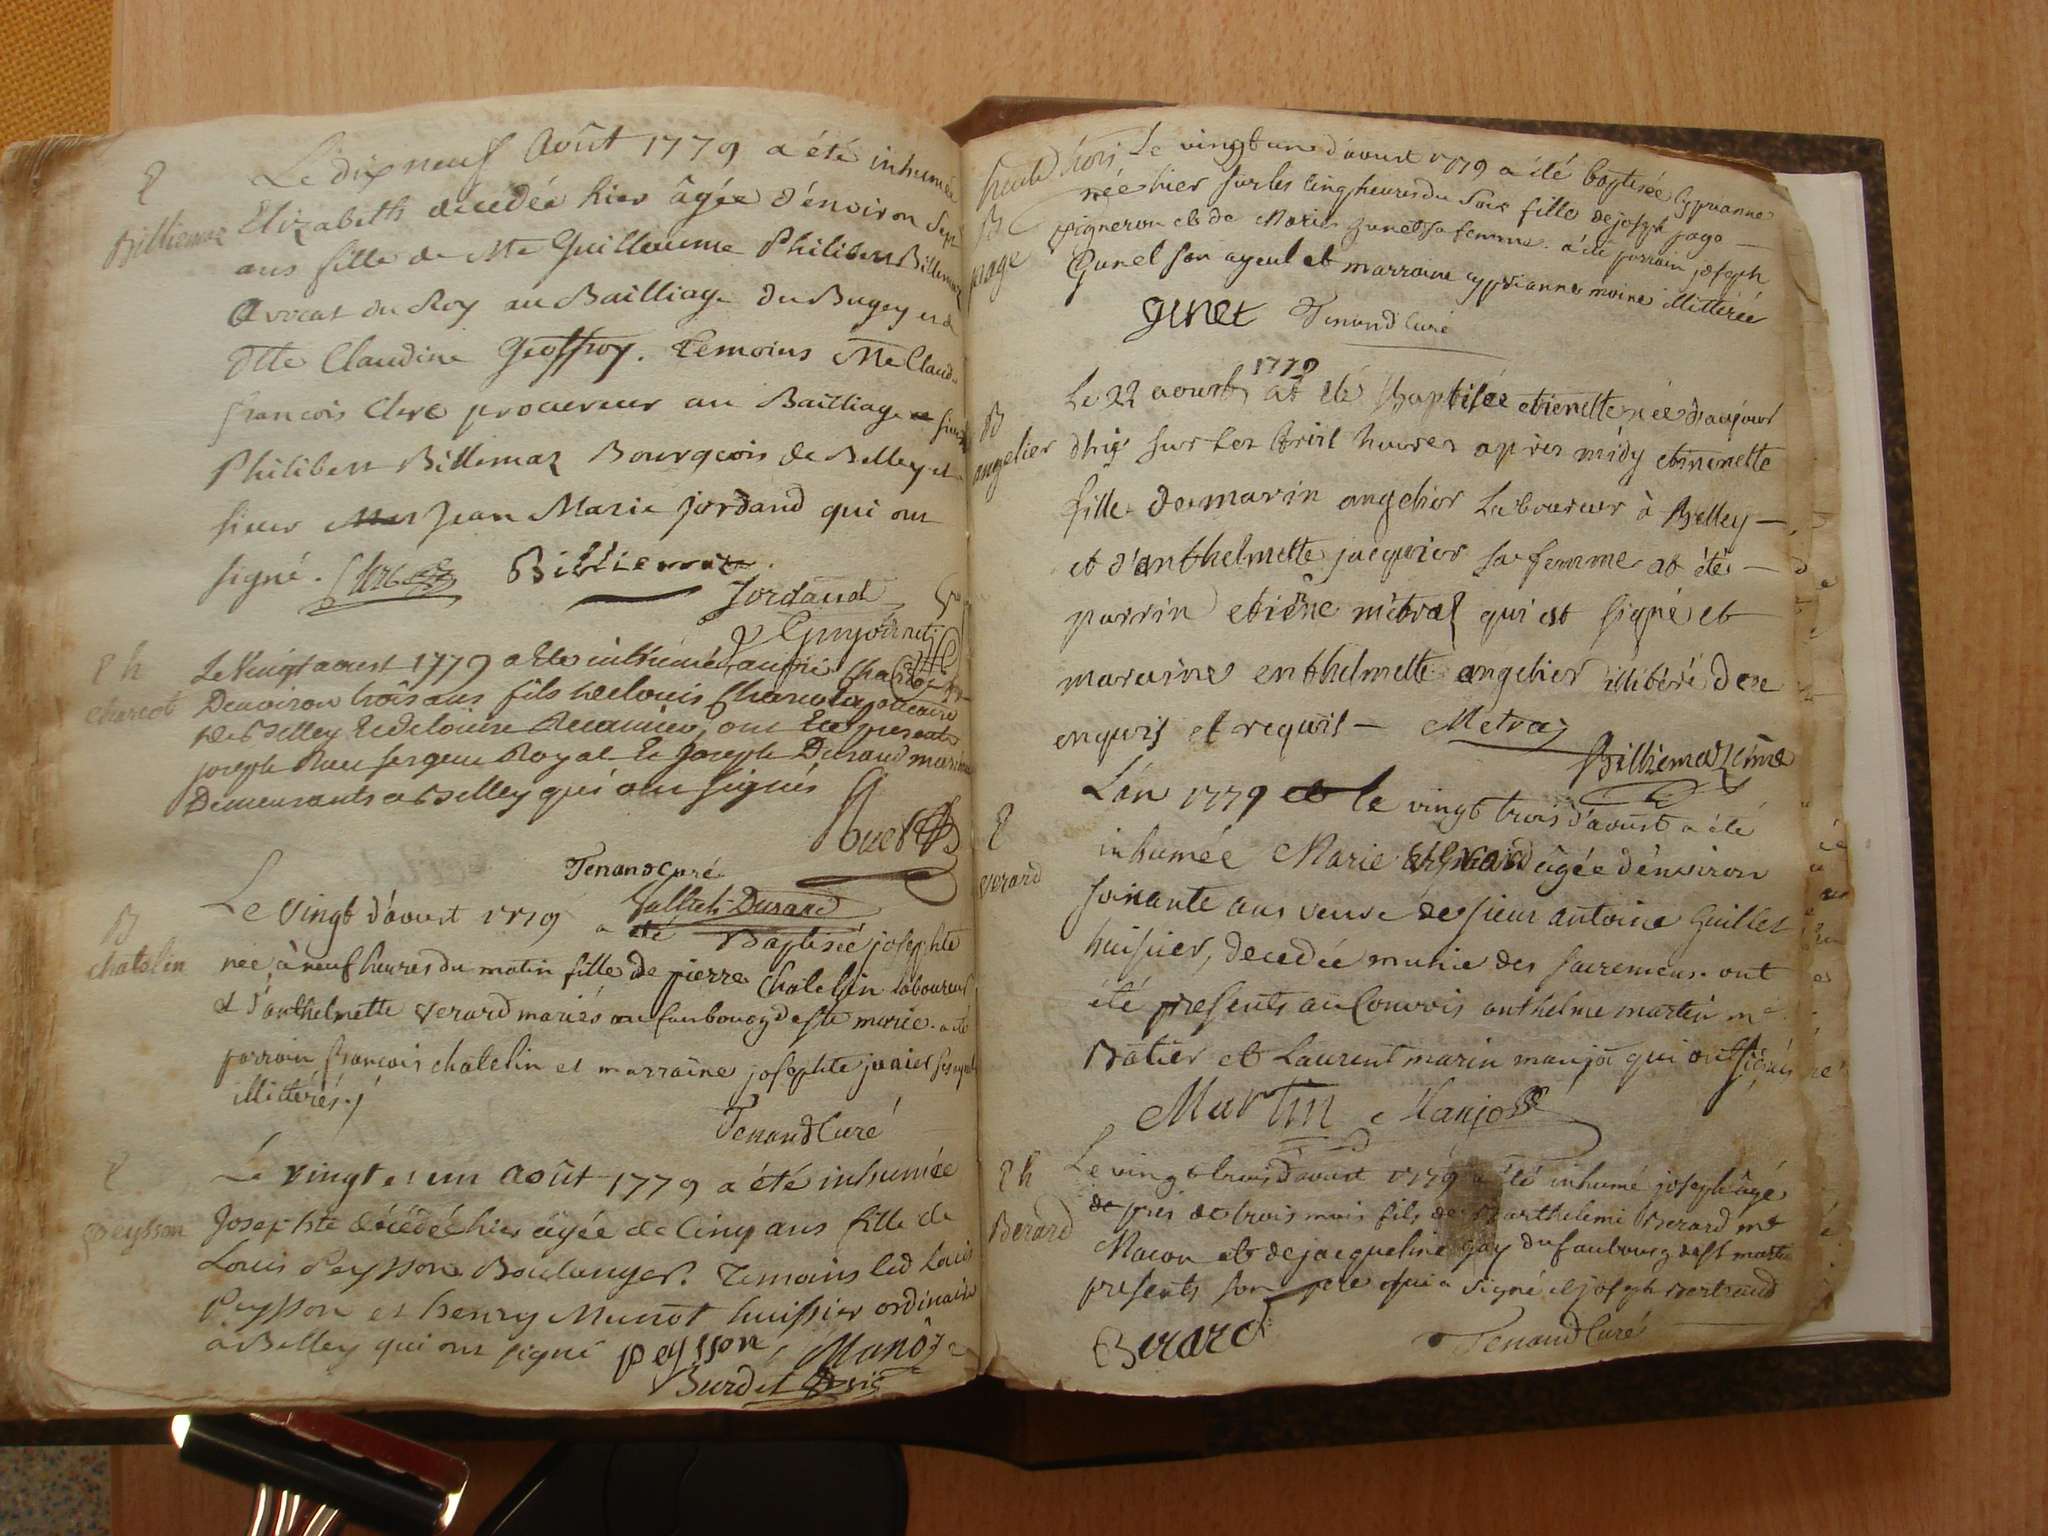 Le dix neuf Août 1779 a été inhumée
Billiemaz Elizabeth decedée hier âgée d'énviron sept
ans fille de Me Guilleaume Philibert Billiemaz
Avocat du Roy au Bailliage du Bugey et de
Dlle Claudine Geoffroy. Temoins Me Claude
françois Clerc procureur au Bailliage sieur
Philibert Billiemaz Bourgeois de Belley et
sieur Jean Marie Jordand qui ont
signé. Clerc Billiemaz
Jordand
P h Le Vingt aoust 1779 a Eté inhumé
Charcot Denviron trois ans fils de louis Charcot
de Belley Et de louise Recamier, ont Eté presents
joseph Ruet sergent Royal Et Joseph Durand
Demeurants a Belley qui ont signés
Ruet
Tenand Curé
Durand
B Le vingt d'aoust 1779 a été Baptisée josephte
chatelin née à neuf heures du matin fille de pierre Chatelin laboureur
et d'anthelmette verard mariés au faubourg de ste marie. a été
parrain françois chatelin et marraine josephte
illiterés
Tenand Curé
Le vingt et un Août 1779 a été inhumée
peysson Josephte décédée hier âgée de Cinq ans fille de
Louis Peysson Boulanger. Temoins led Louis
Peysson et henry Munot huissier ordinaire
à Belley qui ont signé peysson, Munôt
Burdet
Le vingt un d'aoust 1779 a été baptisée Cyprianne
B née hier sur les cinq heures du soir fille de joseph page
page vigneron et de Marie Junet sa femme. a été parrain joseph
Gunet son ayeul et marraine cyprianne moine illitterée
ginet Tenand Curé
1779
B Le 22 aoust at été Baptisée etienette née d'aujourd
angelier dhuy sur les trois heures apres midy etienette
fille de marin angelier Laboureur à Belley
et d'anthelmette jacquier sa femme at été
parrin etiene métral qui at signé et
maraine enthelmette angelier illitéré de ce
enquis et requis Metraz
Billiemaz
P L'an 1779 et le vingt trois d'aoust a été
verard inhumée Marie âgée d'énviron
soixante ans veuve de sieur antoine Guillet
huissier, decedée munie des sacremens. ont
été presents au Convois anthelme martin me
Batier et Laurent marin manjot qui ont signés
Martin Manjot
P h Le vingt trois d'aoust 1779 a été inhumé joseph âgé
Berard de près de trois mois fils de Barthelemi Berard me
Macon et de jacqueline gay du faubourg de st martin
presents son pere qui a signé et joseph Bertrand
Berard Tenand Curé